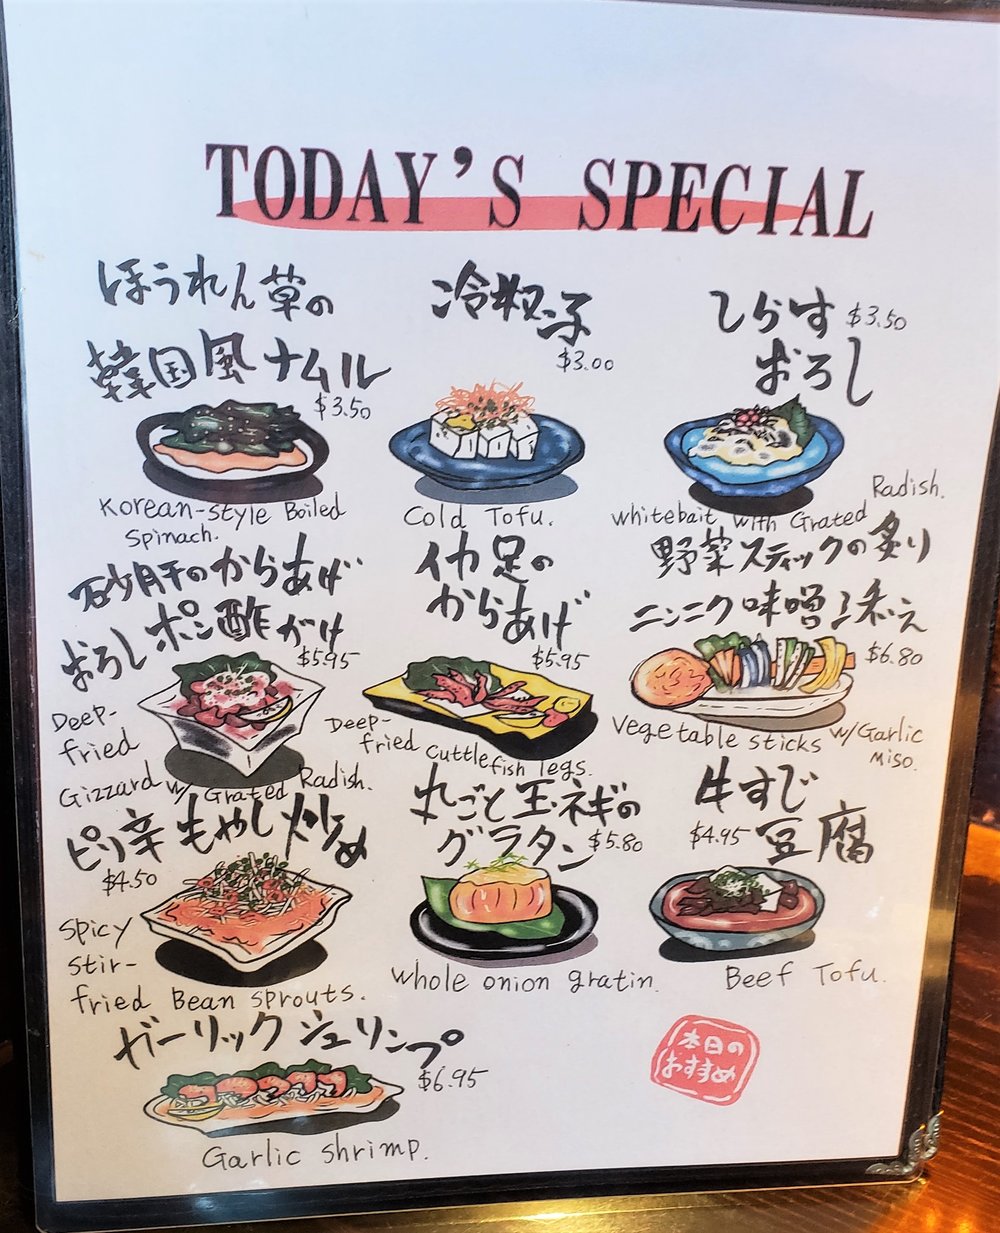 TODAY'S SPECIAL
ほうれん草の
韓国風ナムル
$3.50
Korean-style Boiled
Spinach.
冷奴
$3.00
Cold Tofu.
しらす $3.50
おろし
Radish.
whitebait with Grated
砂肝のからあげ
おろしポン酢がけ
$5.95
Deep-
fried
Gizzard w/ Grated Radish.
イカ足の
からあげ
$5.95
Deep-
fried Cuttlefish legs.
野菜スティックの炙り
ニンニク味噌添え
$6.80
Vegetable sticks w/Garlic
Miso.
ピリ辛もやし炒め
$4.50
Spicy
Stir-
fried Bean sprouts.
丸ごと玉ネギの
グラタン $5.80
whole onion gratin.
牛すじ
$4.95 豆腐
Beef Tofu.
ガーリックシュリンプ
$6.95
Garlic shrimp.
本日の
おすすめ